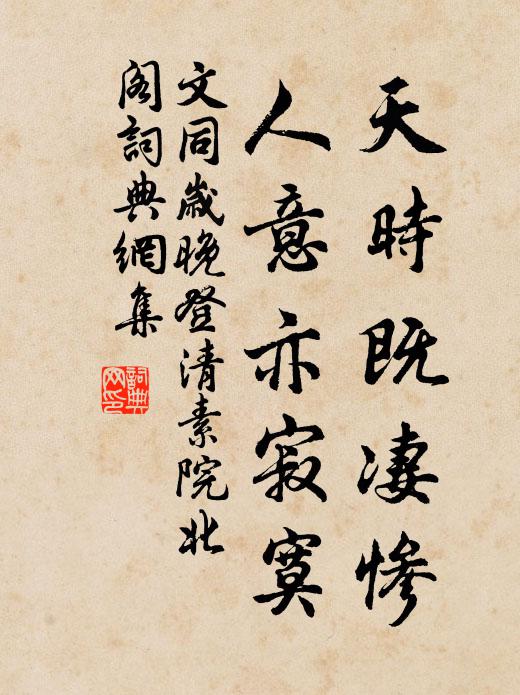 天時既淒慘
人意亦寂寞
文同歲晚登清素院北
閣詞典網集
詞典
网印